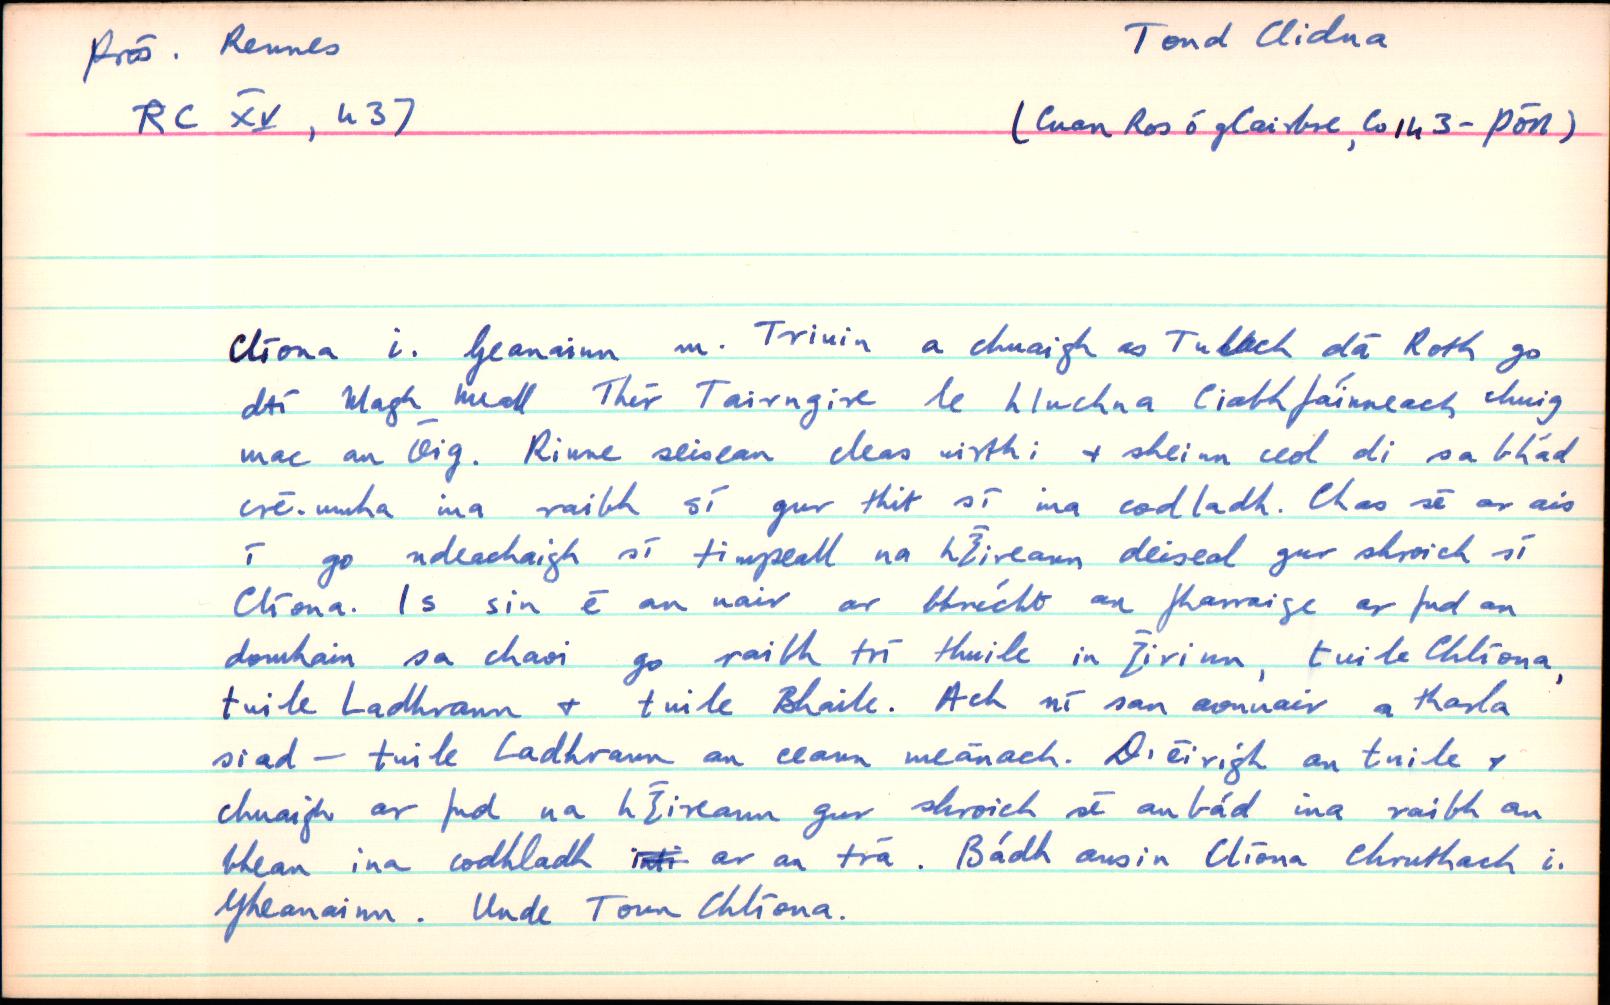 Prós. Rennes
Tond Clidna
RC XV, 437
(Cuan Ros ó gCairbre, Co 143 - PÓR)
Clīona i. Geanainn m. Triuin a chuaigh as Tulach dā Roth go
dtī Magh Meall Thīr Tairngire le hIuchna Ciabhfáinneach chuig
mac an Ōig. Rinne seisean cleas uirthi + sheinn ceol di sa bhád
crē-umha ina raibh sī gur thit sī ina codladh. Chas sē ar ais
ī go ndeachaigh sī timpeall na hĒireann deiseal gur shroich sī
Clīona. Is sin ē an uair ar bhrúcht an fharraige ar fud an
domhain sa chaoi go raibh trī thuile in Ēirinn, tuile Chlīona,
tuile Ladhrann + tuile Bhaile. Ach nī san aonuair a tharla
siad – tuile Ladhrann an ceann meānach. D'ēirigh an tuile +
chuaigh ar fud na hĒireann gur shroich sē an bád ina raibh an
bhean ina codhladh ar an trā. Bádh ansin Clīona Chruthach i.
Gheanainn. Unde Tonn Chlīona.